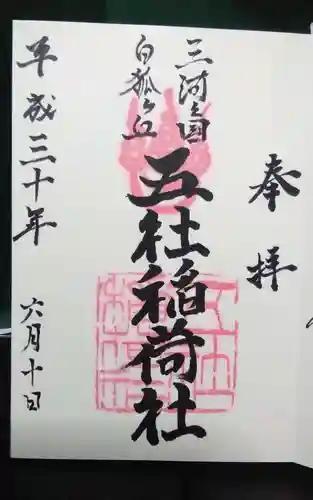 奉拝
三河国
白狐ヶ丘
五社稲荷社
平成三十年
六月十日